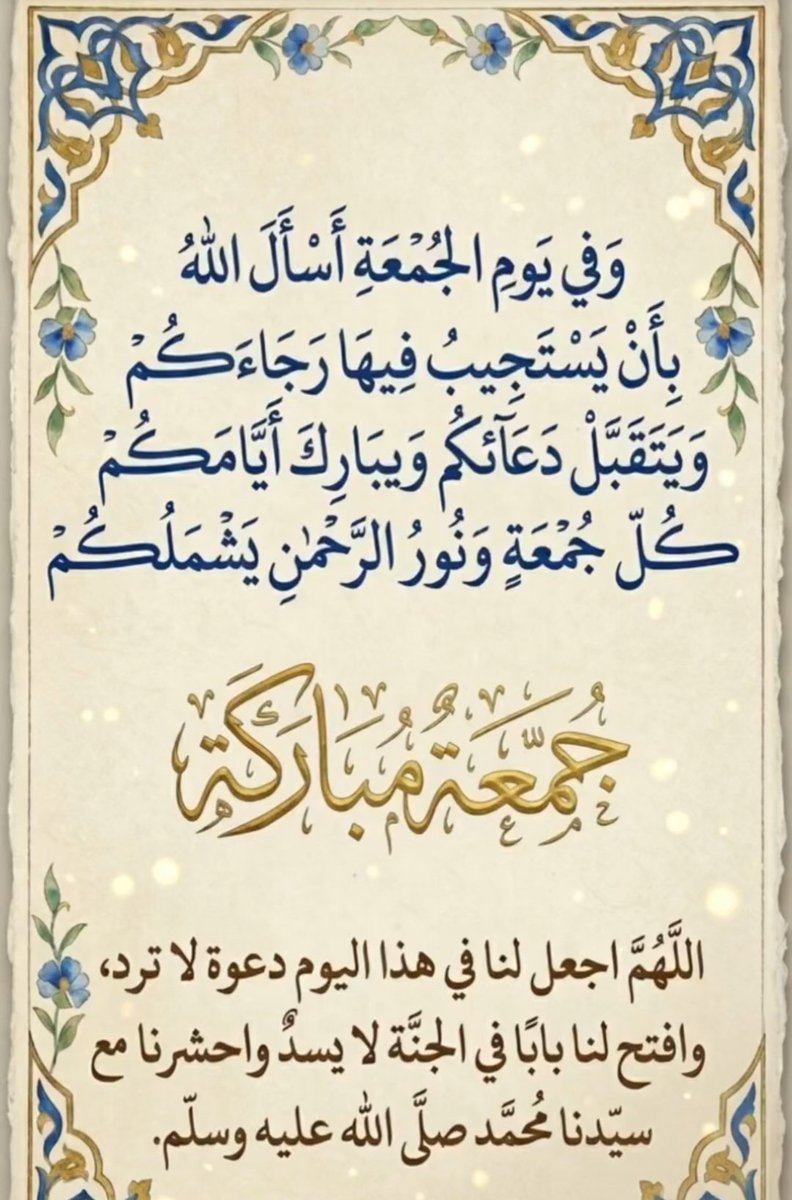 وَفي يَومِ الجُمْعَةِ أَسْأَلَ اللهُ
بِأَنْ يَسْتَجِيبُ فِيهَا رَجَاءَكُمْ
وَيَتَقَبَّلْ دَعَآئكُم وَيبَارِكَ أَيَّامَكُمْ
كُلّ جُمْعَةٍ وَنُورُ الرَّحْمٰنِ يَشْمَلُكُمْ
جُمّعَةٌ مُبَارَكَة
اللَّهُمَّ اجعل لنا في هذا اليوم دعوة لا ترد،
وافتح لنا بابًا في الجنَّة لا يسدٌ واحشرنا مع
سيّدنا مُحمَّد صلَّى الله عليه وسلّم.